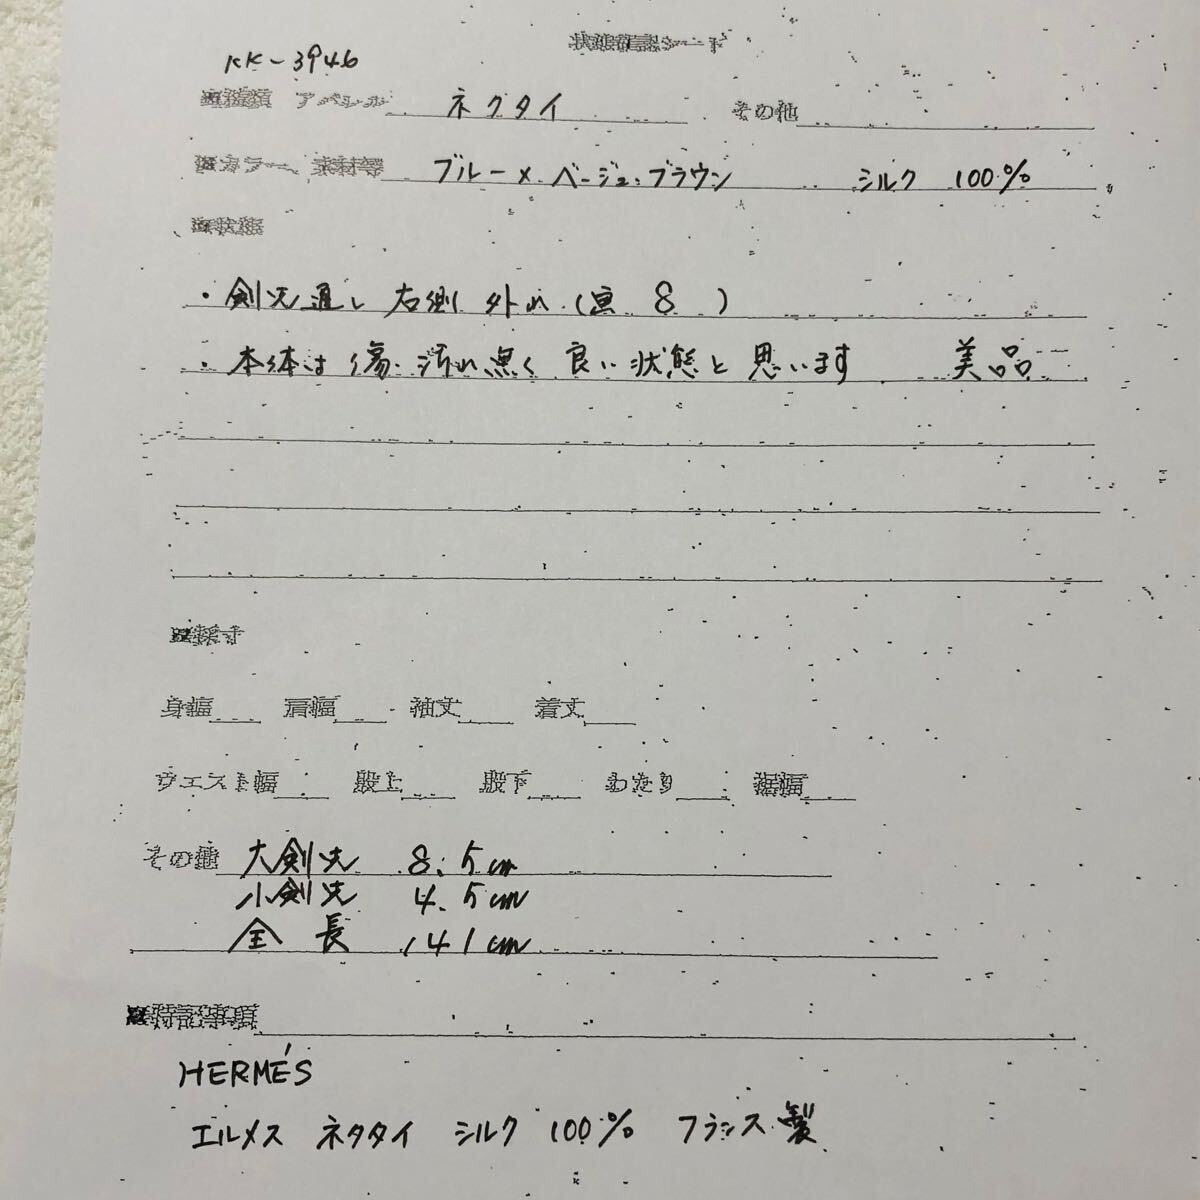 状態確認シート
KK-3946
■種類 アパレル ネクタイ その他
■カラー、素材等 ブルー×ベージュ・ブラウン シルク 100%
■状態
・剣先通し 右側 外れ (画 8 )
・本体は 傷・汚れ無く 良い状態と 思います 美品
■採寸
身幅 肩幅 袖丈 着丈
ウエスト幅 股上 股下 わたり 裾幅
その他 大剣先 8.5cm
小剣先 4.5cm
全 長 141cm
■特記事項
HERMÉS
エルメス ネクタイ シルク 100% フランス製